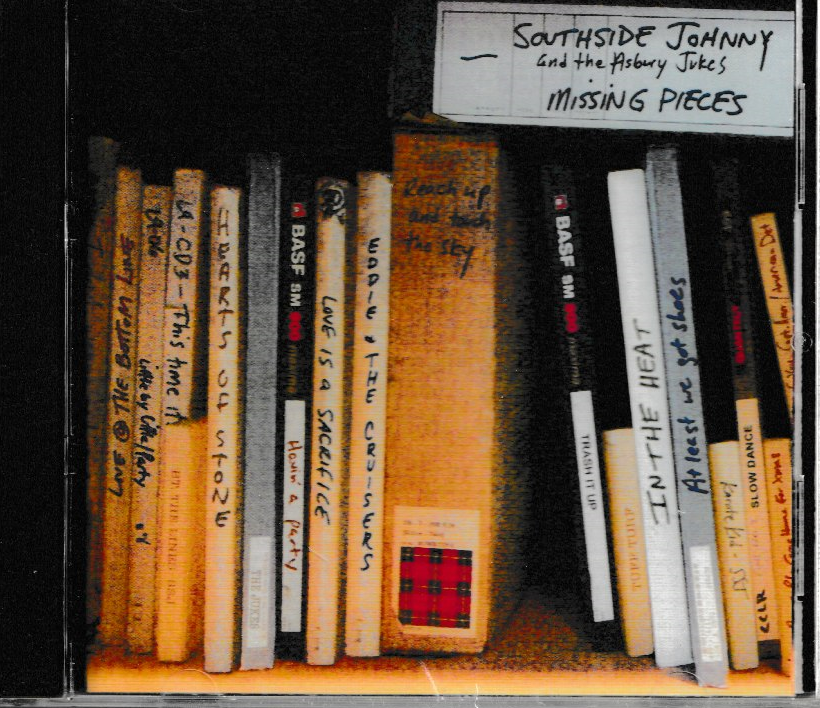 SOUTHSIDE JOHNNY
and the Asbury Jukes
MISSING PIECES
LIVE @ THE BOTTOM LINE
Little by Little / Party
LA-CD3 - This time it
HEARTS OF STONE
THE JUKES
BASF SM
Havin' a party
LOVE IS A SACRIFICE
EDDIE & THE CRUISERS
Reach up
and touch
the sky
BASF SM
TRASH IT UP
TURF TURF
IN THE HEAT
At least we got shoes
SLOW DANCE
CCLR